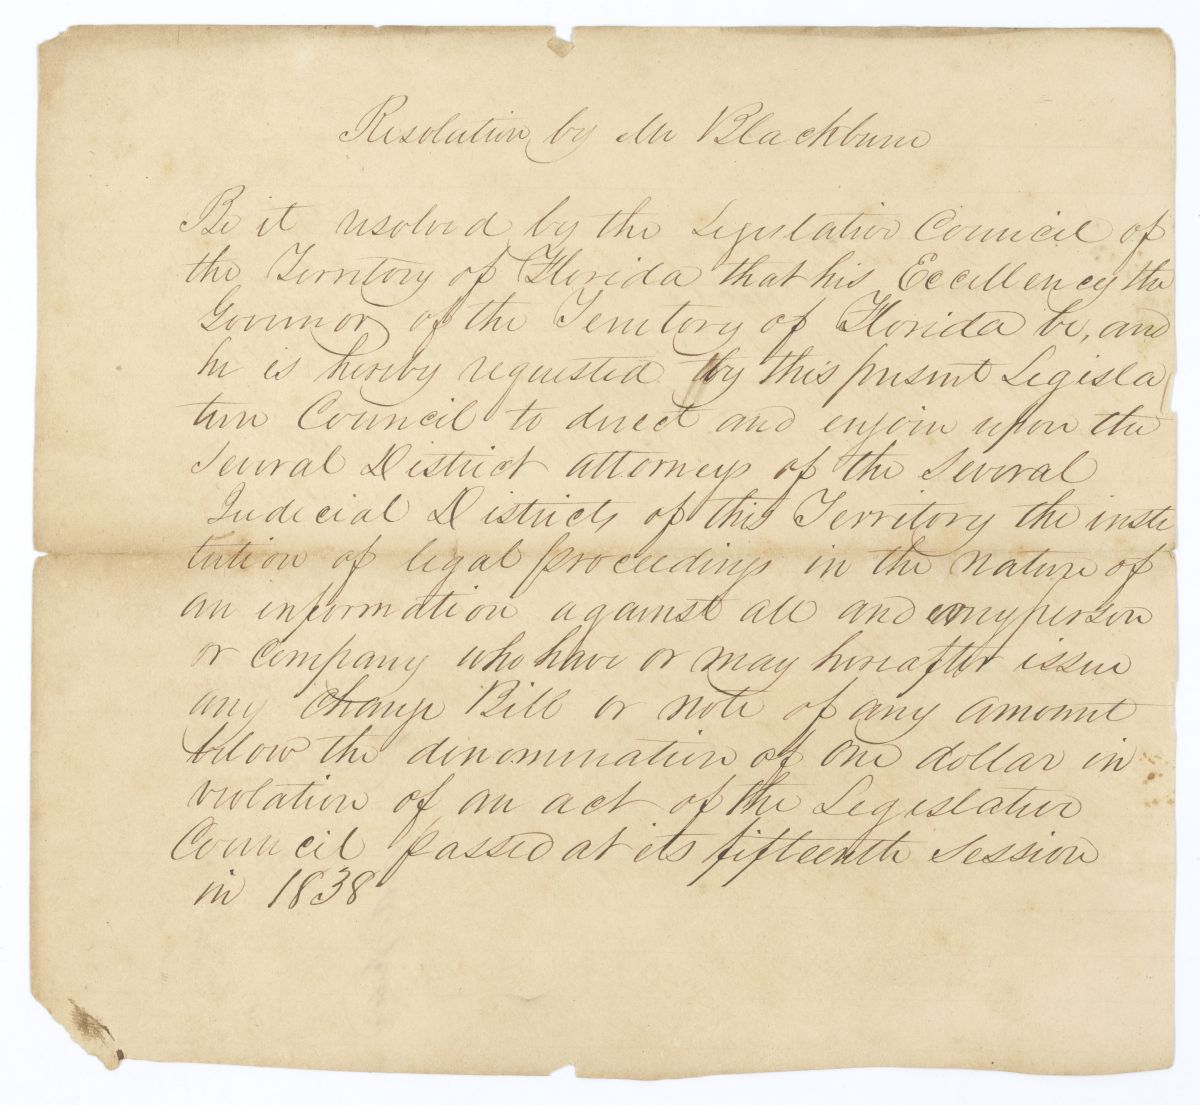 Resolution by Mr Blackburn
Be it resolved by the Legislative Council of
the Territory of Florida that his Excellency the
Governor of the Territory of Florida be, and
he is hereby requested by this present Legisla
tive Council to direct and enjoin upon the
several District attorneys of the several
Judicial Districts of this Territory the insti
tution of legal proceedings in the nature of
an information against all and any person
or company who have or may hereafter issue
any change Bill or note of any amount
below the denomination of one dollar in
violation of an act of the Legislative
Council passed at its fifteenth session
in 1838